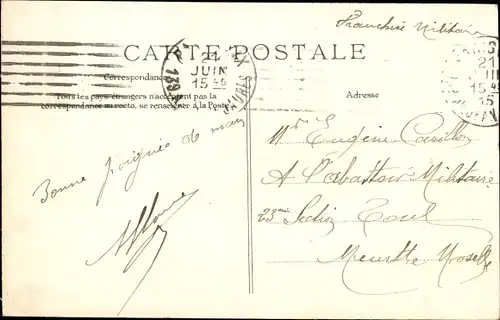 Franchise Militaire
CARTE POSTALE
21
JUIN
15 45
21
JUIN
15 45
15
Correspondance
Tous les pays étrangers n'acceptent pas la
correspondance au recto. se renseigner à la Poste
Adresse
Bonne poignée de main
Mr Eugène
A l'abattoir Militaire
23ème Section Toul
Meurthe Moselle